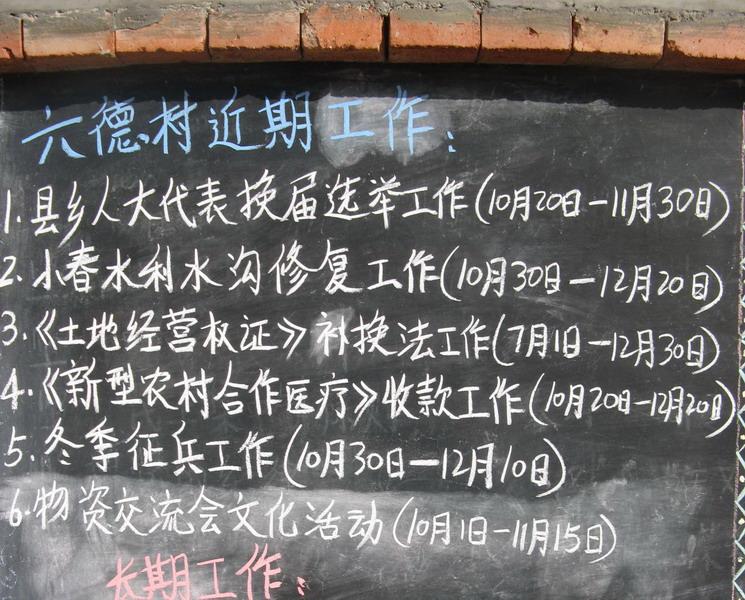 六德村近期工作:
1.县乡人大代表换届选举工作(10月20日-11月30日)
2.小春水利水沟修复工作(10月30日-12月20日)
3.《土地经营权证》补换法工作(7月1日-12月30日)
4.《新型农村合作医疗》收款工作(10月20日-12月20日)
5.冬季征兵工作(10月30日-12月10日)
6.物资交流会文化活动(10月1日-11月15日)
长期工作: